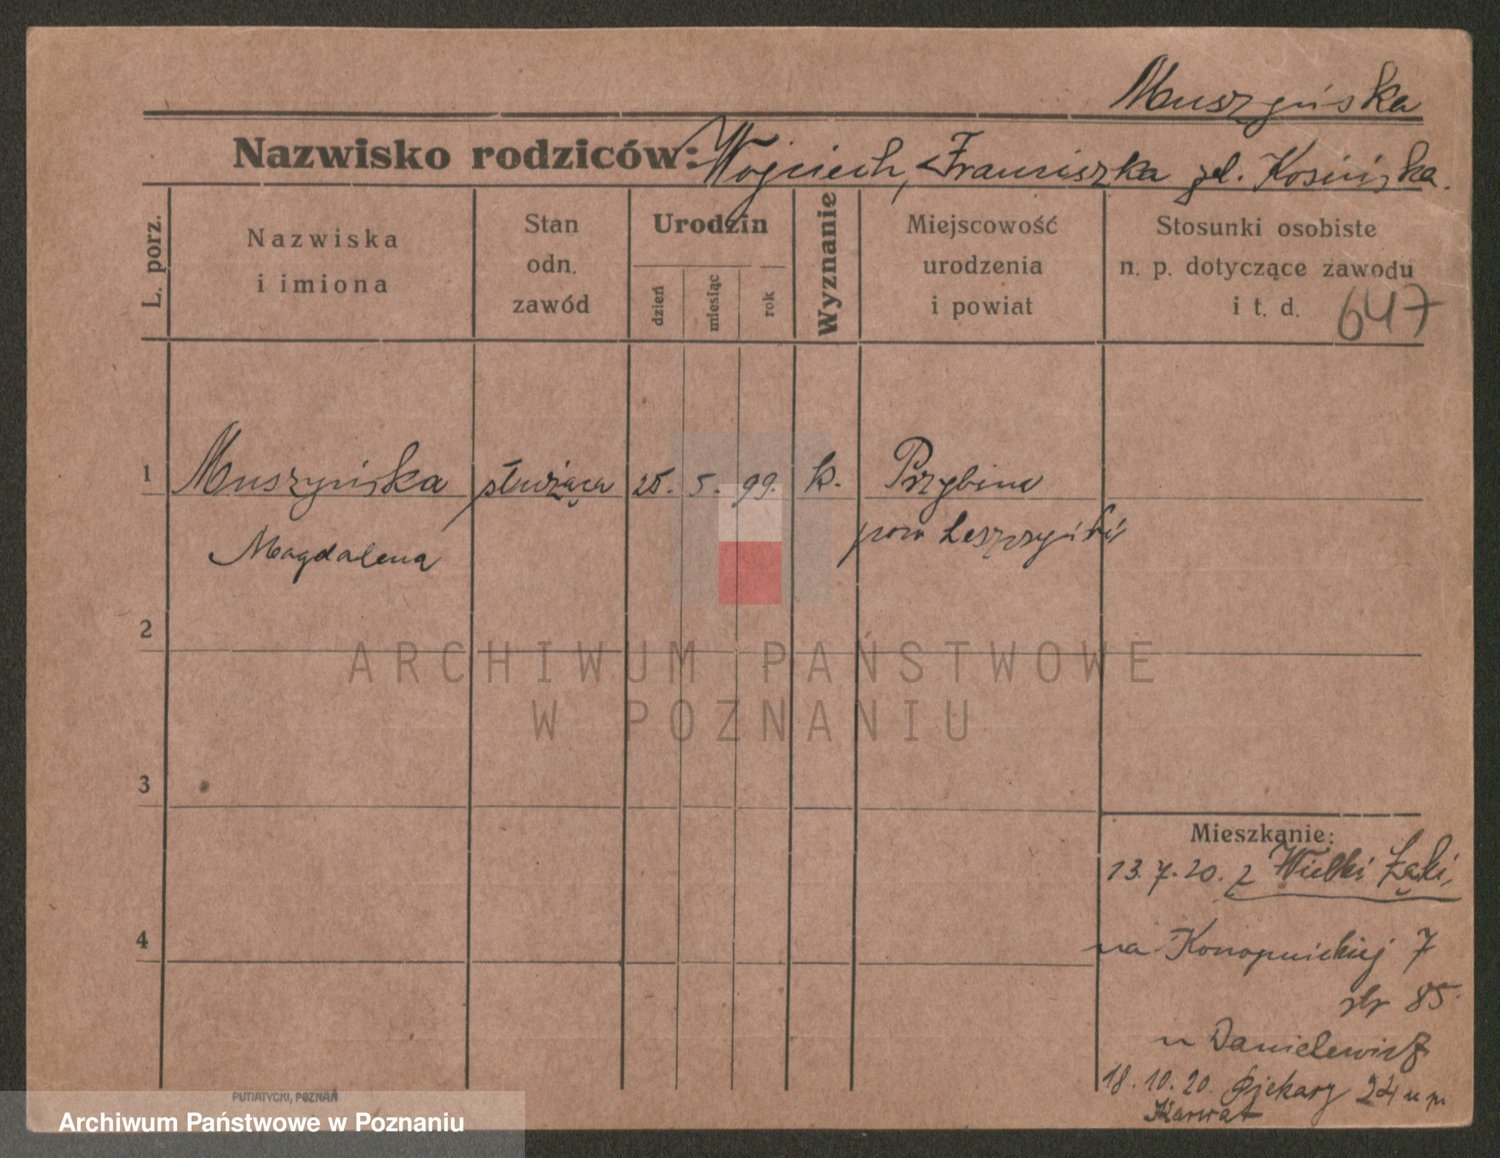 Muszyńska
Nazwisko rodziców: Wojciech, Franciszka zd. Kosińska.
L. porz.
Nazwiska
i imiona
Stan
odn.
zawód
Urodzin
dzień
miesiąc
rok
Wyznanie
Miejscowość
urodzenia
i powiat
Stosunki osobiste
n. p. dotyczące zawodu
i t. d.
647
1 Muszyńska służąca 25. 5. 99. k. Przybina
Magdalena pow Leszczyński
2
3
4
Mieszkanie:
13. 7. 20. z Wielki Łąki,
na Konopnickiej 7
str 85
u Danielewicz
18. 10. 20. Piekary 24 u p.
Karwat
PUTIATYCKI, POZNAŃ
ARCHIWUM PAŃSTWOWE
W POZNANIU
Archiwum Państwowe w Poznaniu